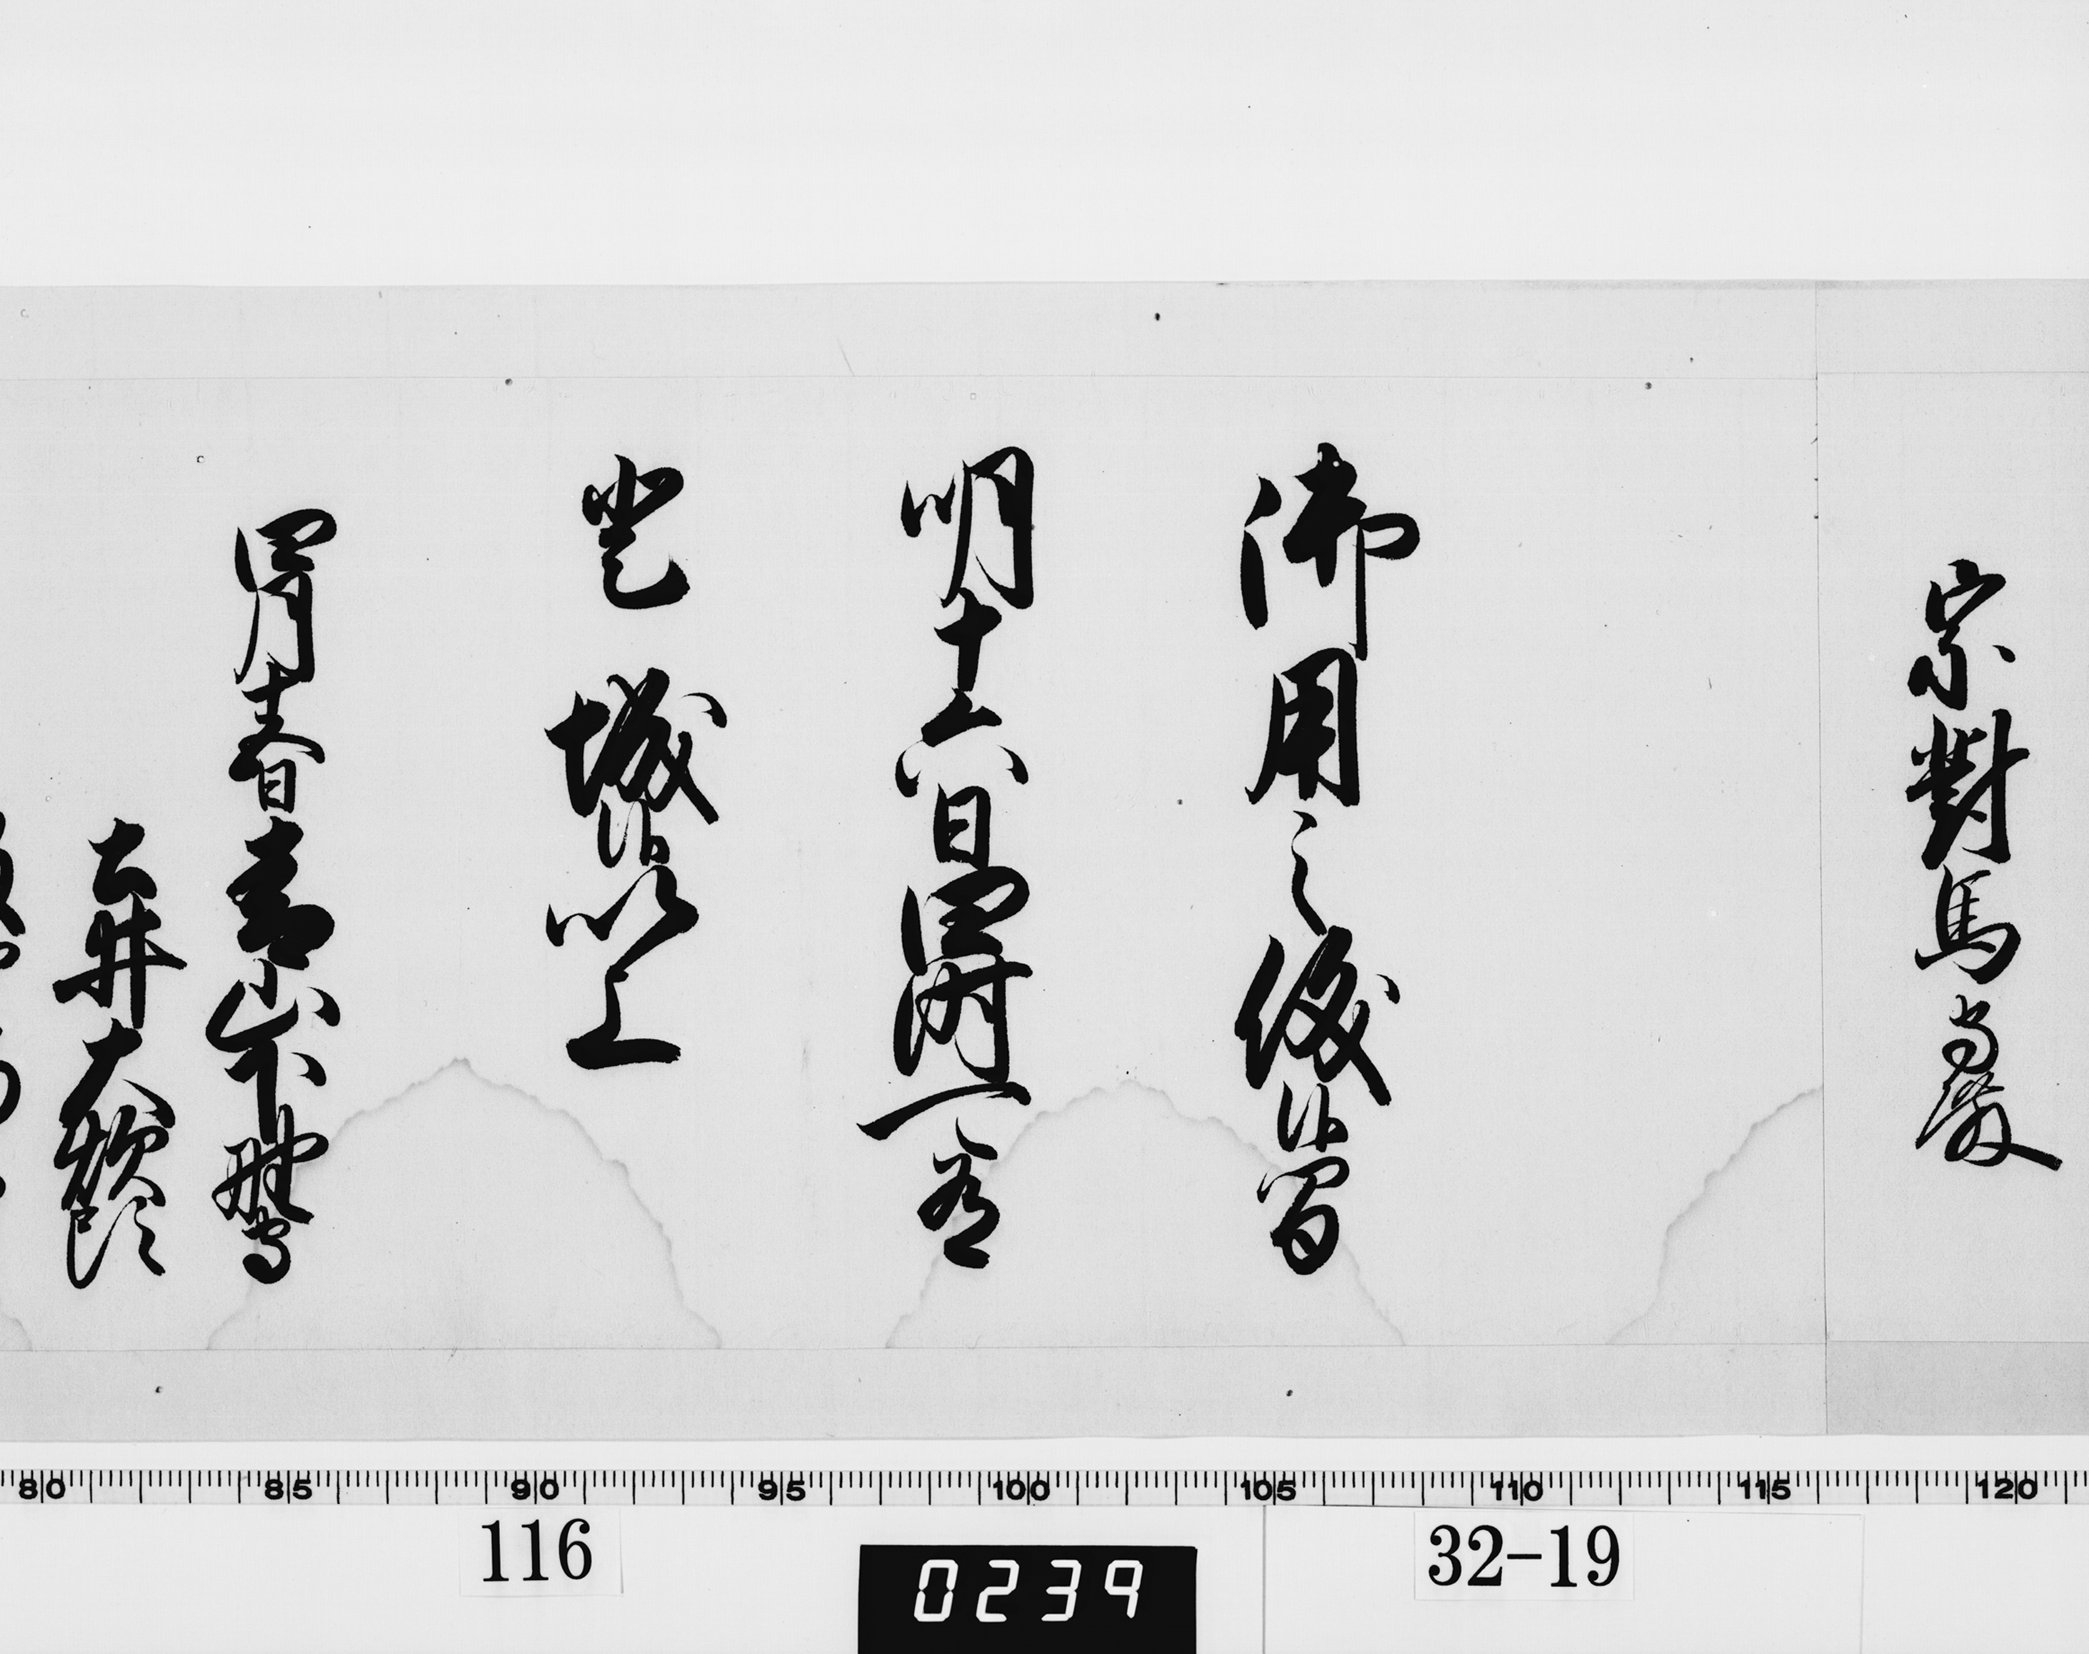 宗對馬守殿
御用之儀候間
明十六日四時可有
登 城候以上
四月十五日 青山下野守
土井大炊頭
116
0239
32-19
80 85 90 95 100 105 110 115 120